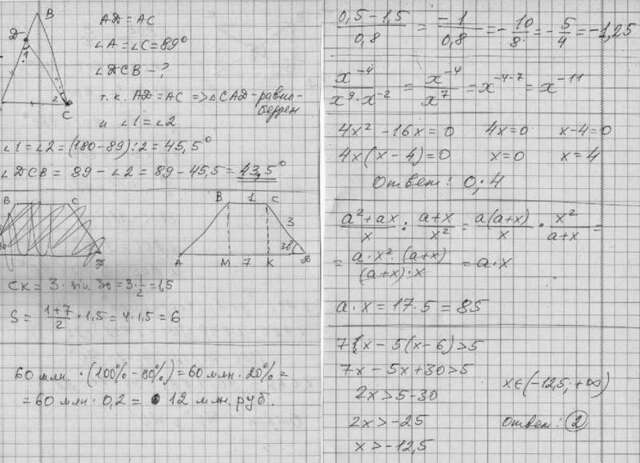 B
D
1
2
C
AD = AC
∠A = ∠C = 89°
∠DCB - ?
т.к. AD = AC => △CAD - равно-
бедрен
и ∠1 = ∠2
∠1 = ∠2 = (180-89):2 = 45,5°
∠DCB = 89 - ∠2 = 89 - 45,5 = 43,5°
B C
B 1 C
3
30
A M 7 K D
CK = 3 · sin 30 = 3·1/2 = 1,5
S = (1+7)/2 · 1,5 = 4·1,5 = 6
60 млн. · (100% - 80%) = 60 млн · 20% =
= 60 млн · 0,2 = 12 млн. руб.
(0,5-1,5)/0,8 = -1/0,8 = -10/8 = -5/4 = -1,25
x⁻⁴/(x⁹·x⁻²) = x⁻⁴/x⁷ = x⁻⁴⁻⁷ = x⁻¹¹
4x² - 16x = 0 4x = 0 x-4 = 0
4x(x-4) = 0 x = 0 x = 4
Ответ: 0; 4
(a²+ax)/x : (a+x)/x² = a(a+x)/x · x²/(a+x) =
= (a·x²·(a+x))/((a+x)·x) = a·x
a·x = 17·5 = 85
7x - 5(x-6) > 5
7x - 5x + 30 > 5
2x > 5-30
2x > -25
x > -12,5
x∈(-12,5; +∞)
ответ: 2